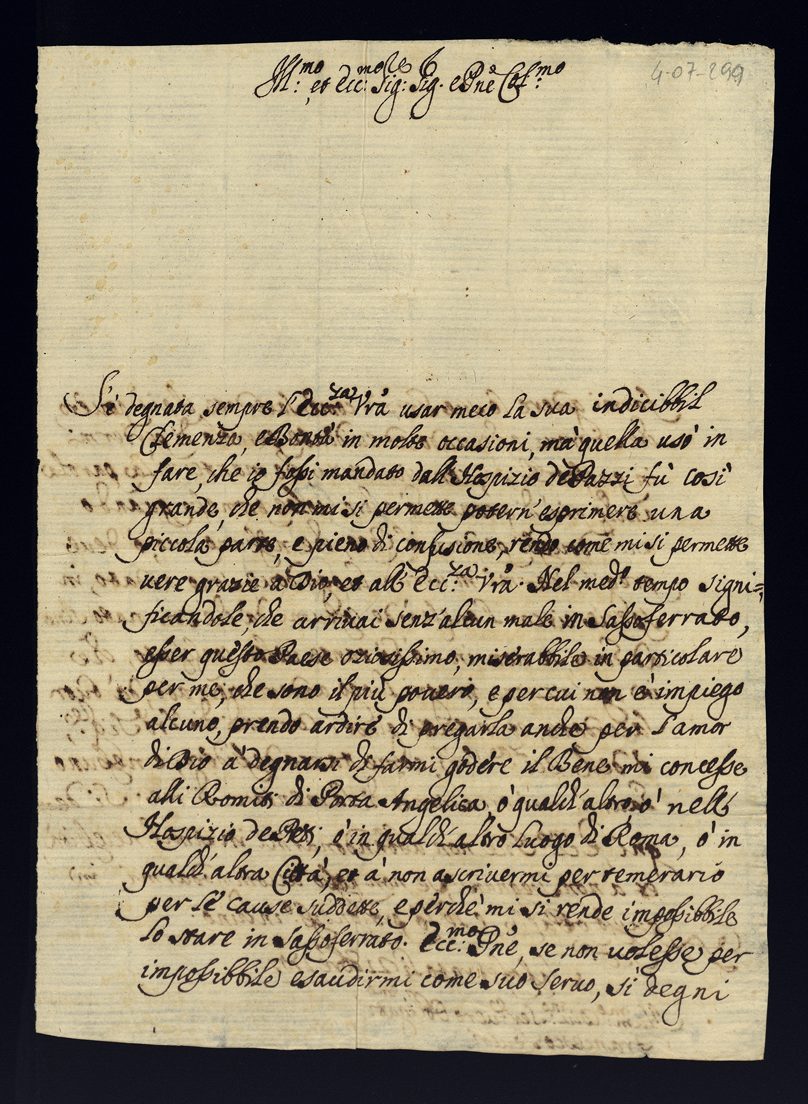 Ill:mo et Ecc:mo Sig: Sig. e Pne Col:mo
4-07-299
S'è degnata sempre l'Ecc:za Vrã usar meco la sua indicibbil
Clemenza, e Bontà in molte occasioni, mà quella usò in
fare, che io fossi mandato dall'Hospizio de Pazzi fù così
grande, che non mi si permette poterne esprimere una
piccola parte, e pieno di confusione, rendo come mi si permette
vere grazie à Dio, et all'Ecc:za Vrã. Nel med.º tempo signi=
ficandole, che arrivai senz'alcun male in Sassoferrato,
esser questo Paese oziosissimo, miserabbile in particolare
per me, che sono il più povero, e per cui non è impiego
alcuno, prendo ardire di pregarla anche per l'amor
di Dio à degnarsi di farmi godere il Bene mi concesse
alli Romiti di Porta Angelica ò qualch'altro, ò nell'
Hospizio de Preti, ò in qualch'altro luogo di Roma, ò in
qualch'altra Città, et à non ascrivermi per temerario
per le cause suddette, e perchè mi si rende impossibbile
lo stare in Sassoferrato. Ecc:mo Pne, se non volesse per
impossibbile esaudirmi come suo servo, si degni